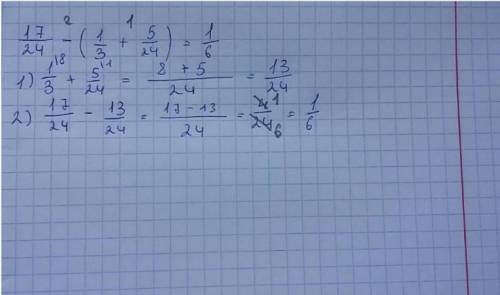 17/24 -² ( 1/3 +¹ 5/24 ) = 1/6
1) 1/3 ⁽⁸ + 5/24 ⁽¹ = 8 + 5/24 = 13/24
2) 17/24 - 13/24 = 17 - 13/24 = 4¹/24₆ = 1/6